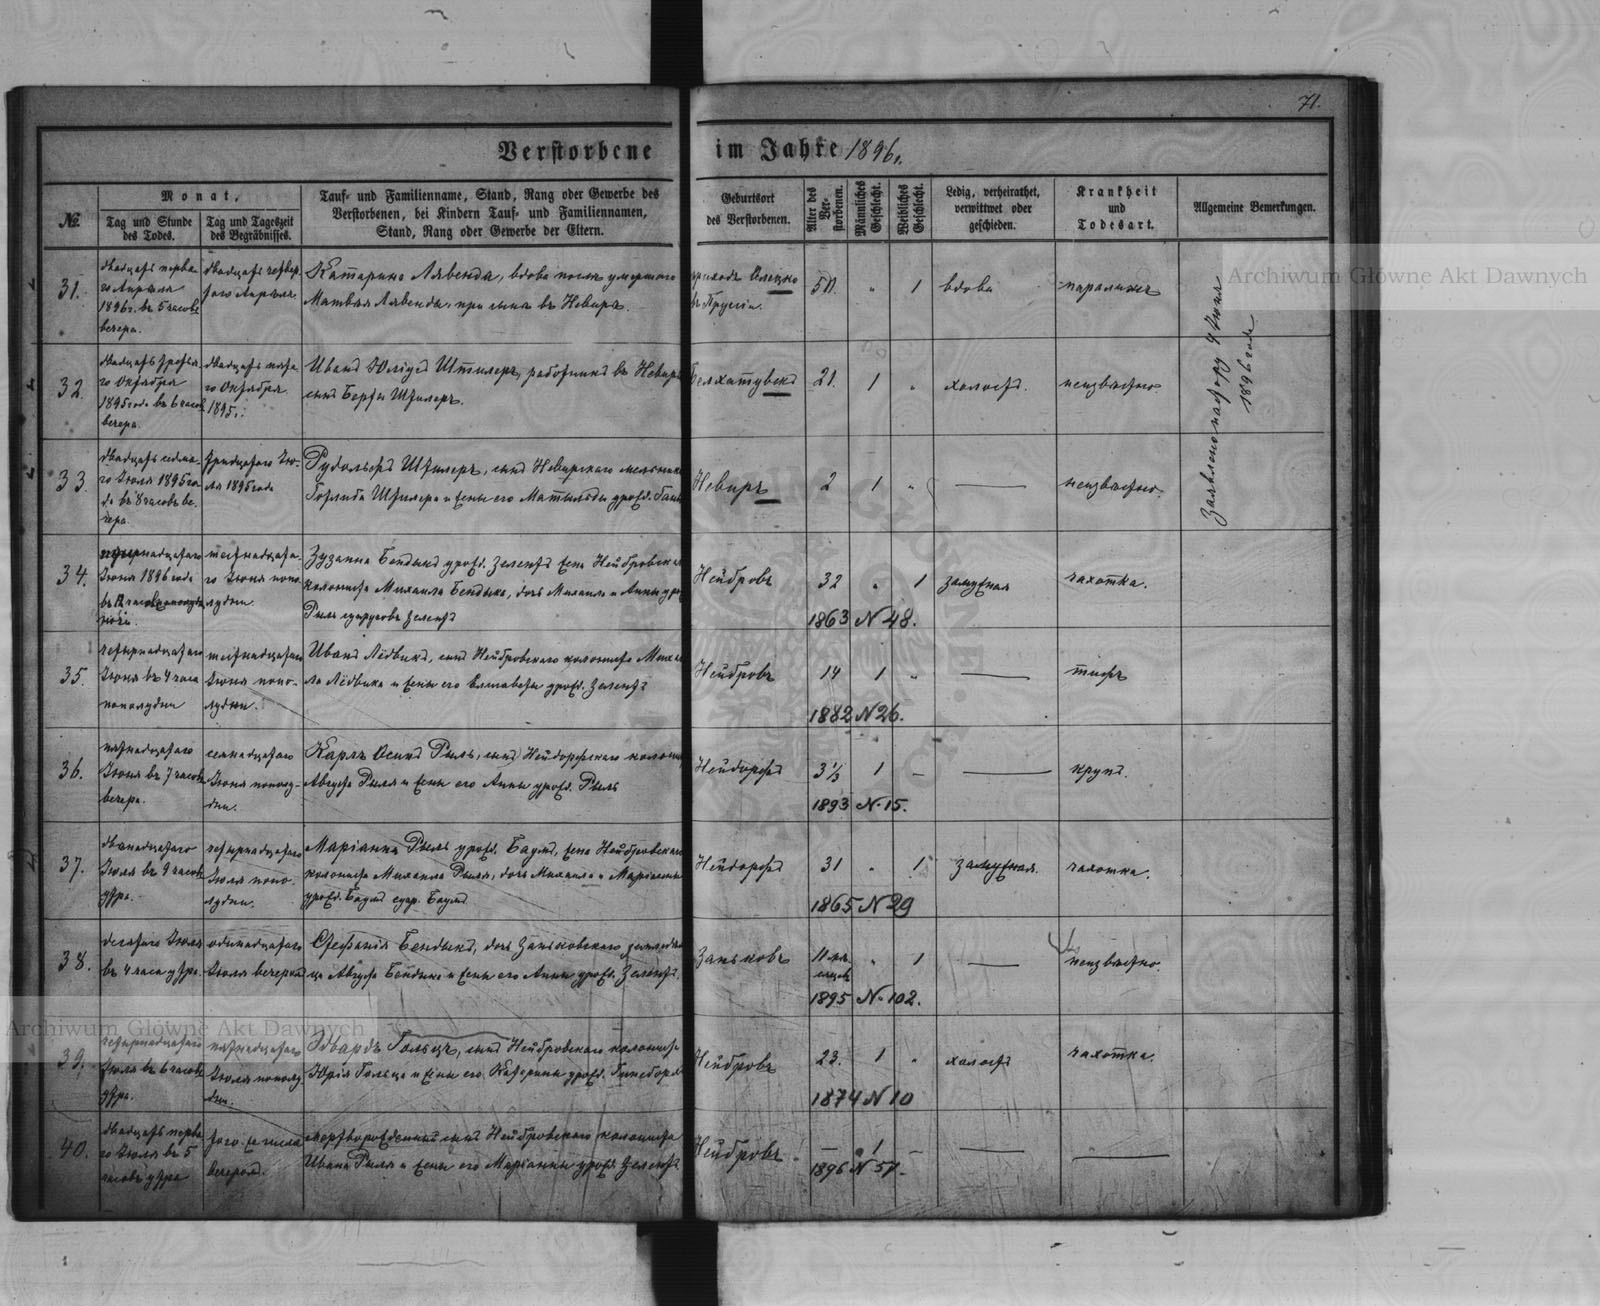 71.
Verstorbene im Jahre 1896.
№
Monat,
Tag und Stunde des Todes.
Tag und Tageszeit des Begräbnisses.
Tauf- und Familienname, Stand, Rang oder Gewerbe des
Verstorbenen, bei Kindern Tauf- und Familiennamen,
Stand, Rang oder Gewerbe der Eltern.
Geburtsort
des Verstorbenen.
Alter des Ver-
storbenen.
Männliches
Geschlecht.
Weibliches
Geschlecht.
Ledig, verheirathet,
verwittwet oder
geschieden.
Krankheit
und
Todesart.
Allgemeine Bemerkungen.
31.
двадцать перва-
го Апрѣля
1896 г. въ 5 часовъ
вечера.
двадцать четвер-
таго Апрѣля.
Катарина Лявенда, вдова послѣ умершаго
Матвѣя Лявенды, при сынѣ въ Невирѣ.
въ Пруссіи.
50. " 1
вдова
параличъ
32.
двадцать третья-
го Октября
1895 года въ 6 часовъ
вечера.
двадцать пята-
го Октября
1895 г.
Иванъ Штилеръ, работникъ въ Невирѣ
сынъ Штилеръ.
21. 1 "
холостъ.
неизвѣстно.
33.
двадцать седьма-
го Іюля 1895 го-
да въ 8 часовъ ве-
чера.
тридцатаго Ію-
ля 1895 года
Рудольфъ Штилеръ, сынъ Невирскаго мельника
Готлиба Штилера и жены его Матильды урожд.
Невиръ
2 1 "
неизвѣстно.
Заявлено пастору 4 Іюня
1896 года
34.
Іюня 1896 года
шестнадцата-
го Іюня попо-
лудни.
Зузанна Бендыкъ урожд. Зелентъ жена Нейбровскаго
колониста Михаила Бендыка, дочь Михаила и Анны урожд.
Рыль супруговъ Зелентъ
Нейбровъ
32 " 1
1863 N 48.
замужняя
чахотка.
35.
четырнадцатаго
Іюня въ 4 часа
пополудни
шестнадцатаго
Іюня попо-
лудни.
Иванъ Лёдвикъ, сынъ Нейбровскаго колониста Миха-
ла Лёдвика и жены его Елисаветы урожд. Зелентъ
Нейбровъ
14 1 "
1882 N 26.
тифъ
36.
пятнадцатаго
Іюня въ 7 часовъ
вечера.
семнадцатаго
Іюня пополу-
дни.
Карлъ Осипъ Рыль, сынъ Нейдорфскаго колониста
Августа Рыля и жены его Анны урожд. Рыль
Нейдорфъ
3 1/3 1 –
1893 N. 15.
крупъ.
37.
двѣнадцатаго
Іюля въ 9 часовъ
утра.
четырнадцатаго
Іюля попо-
лудни.
Маріанна Рыль урожд. Баумъ, жена Нейбровскаго
колониста Михаила Рыля, дочь Михаила и Маріанны
урожд. Баумъ супр. Баумъ
Нейдорфъ
31 " 1
1865 N 29
замужняя.
чахотка.
38.
десятаго Іюля
въ 4 часа утра.
одинадцатаго
Іюля вечеромъ
Стефанія Бендыкъ, дочь Заньковскаго
Августа Бендыка и жены его Анны урожд. Зелентъ.
Заньковъ
11 мѣ-
сяцевъ
" 1
1895 N. 102.
неизвѣстно.
39.
четырнадцатаго
Іюля въ 6 часовъ
утра.
пятнадцатаго
Іюля пополу-
дни.
Эдвардъ Гольцъ, сынъ Нейбровскаго колониста
Юрія Гольца и жены его Катарины урожд. Гинсборъ
Нейбровъ
23. 1 "
1874 N 10
холостъ
чахотка.
40.
двадцать перва-
го Іюля въ 5
часовъ утра
того же числа
вечеромъ.
мертворожденный сынъ Нейбровскаго колониста
Ивана Рыля и жены его Маріанны урожд. Зелентъ
Нейбровъ
– 1 –
1896 N 57.
Archiwum Główne Akt Dawnych
Archiwum Główne Akt Dawnych